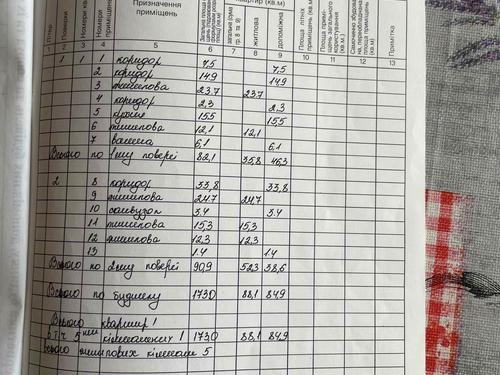 Літер
Поверхи
Номери
Призначення приміщень
житлова
допоміжна
Примітка
3 4 5 6 7 8 9 10 11 12 13
1 1 1 коридор 7,5 7,5
2 коридор 14,9 14,9
3 житлова 23,7 23,7
4 коридор 2,3 2,3
5 кухня 15,5 15,5
6 житлова 12,1 12,1
7 ванна 6,1 6,1
Всього по 1му поверсі 82,1 35,8 46,3
2 8 коридор 33,8 33,8
9 житлова 24,7 24,7
10 санвузол 3,4 3,4
11 житлова 15,3 15,3
12 житлова 12,3 12,3
13 1.4 1.4
Всього по 2му поверсі 90,9 52,3 38,6
Всього по будинку 173,0 88,1 84,9
Всього квартир 1
в т.ч. 5 ми кімнатних 1 173,0 88,1 84,9
Всього житлових кімнат 5